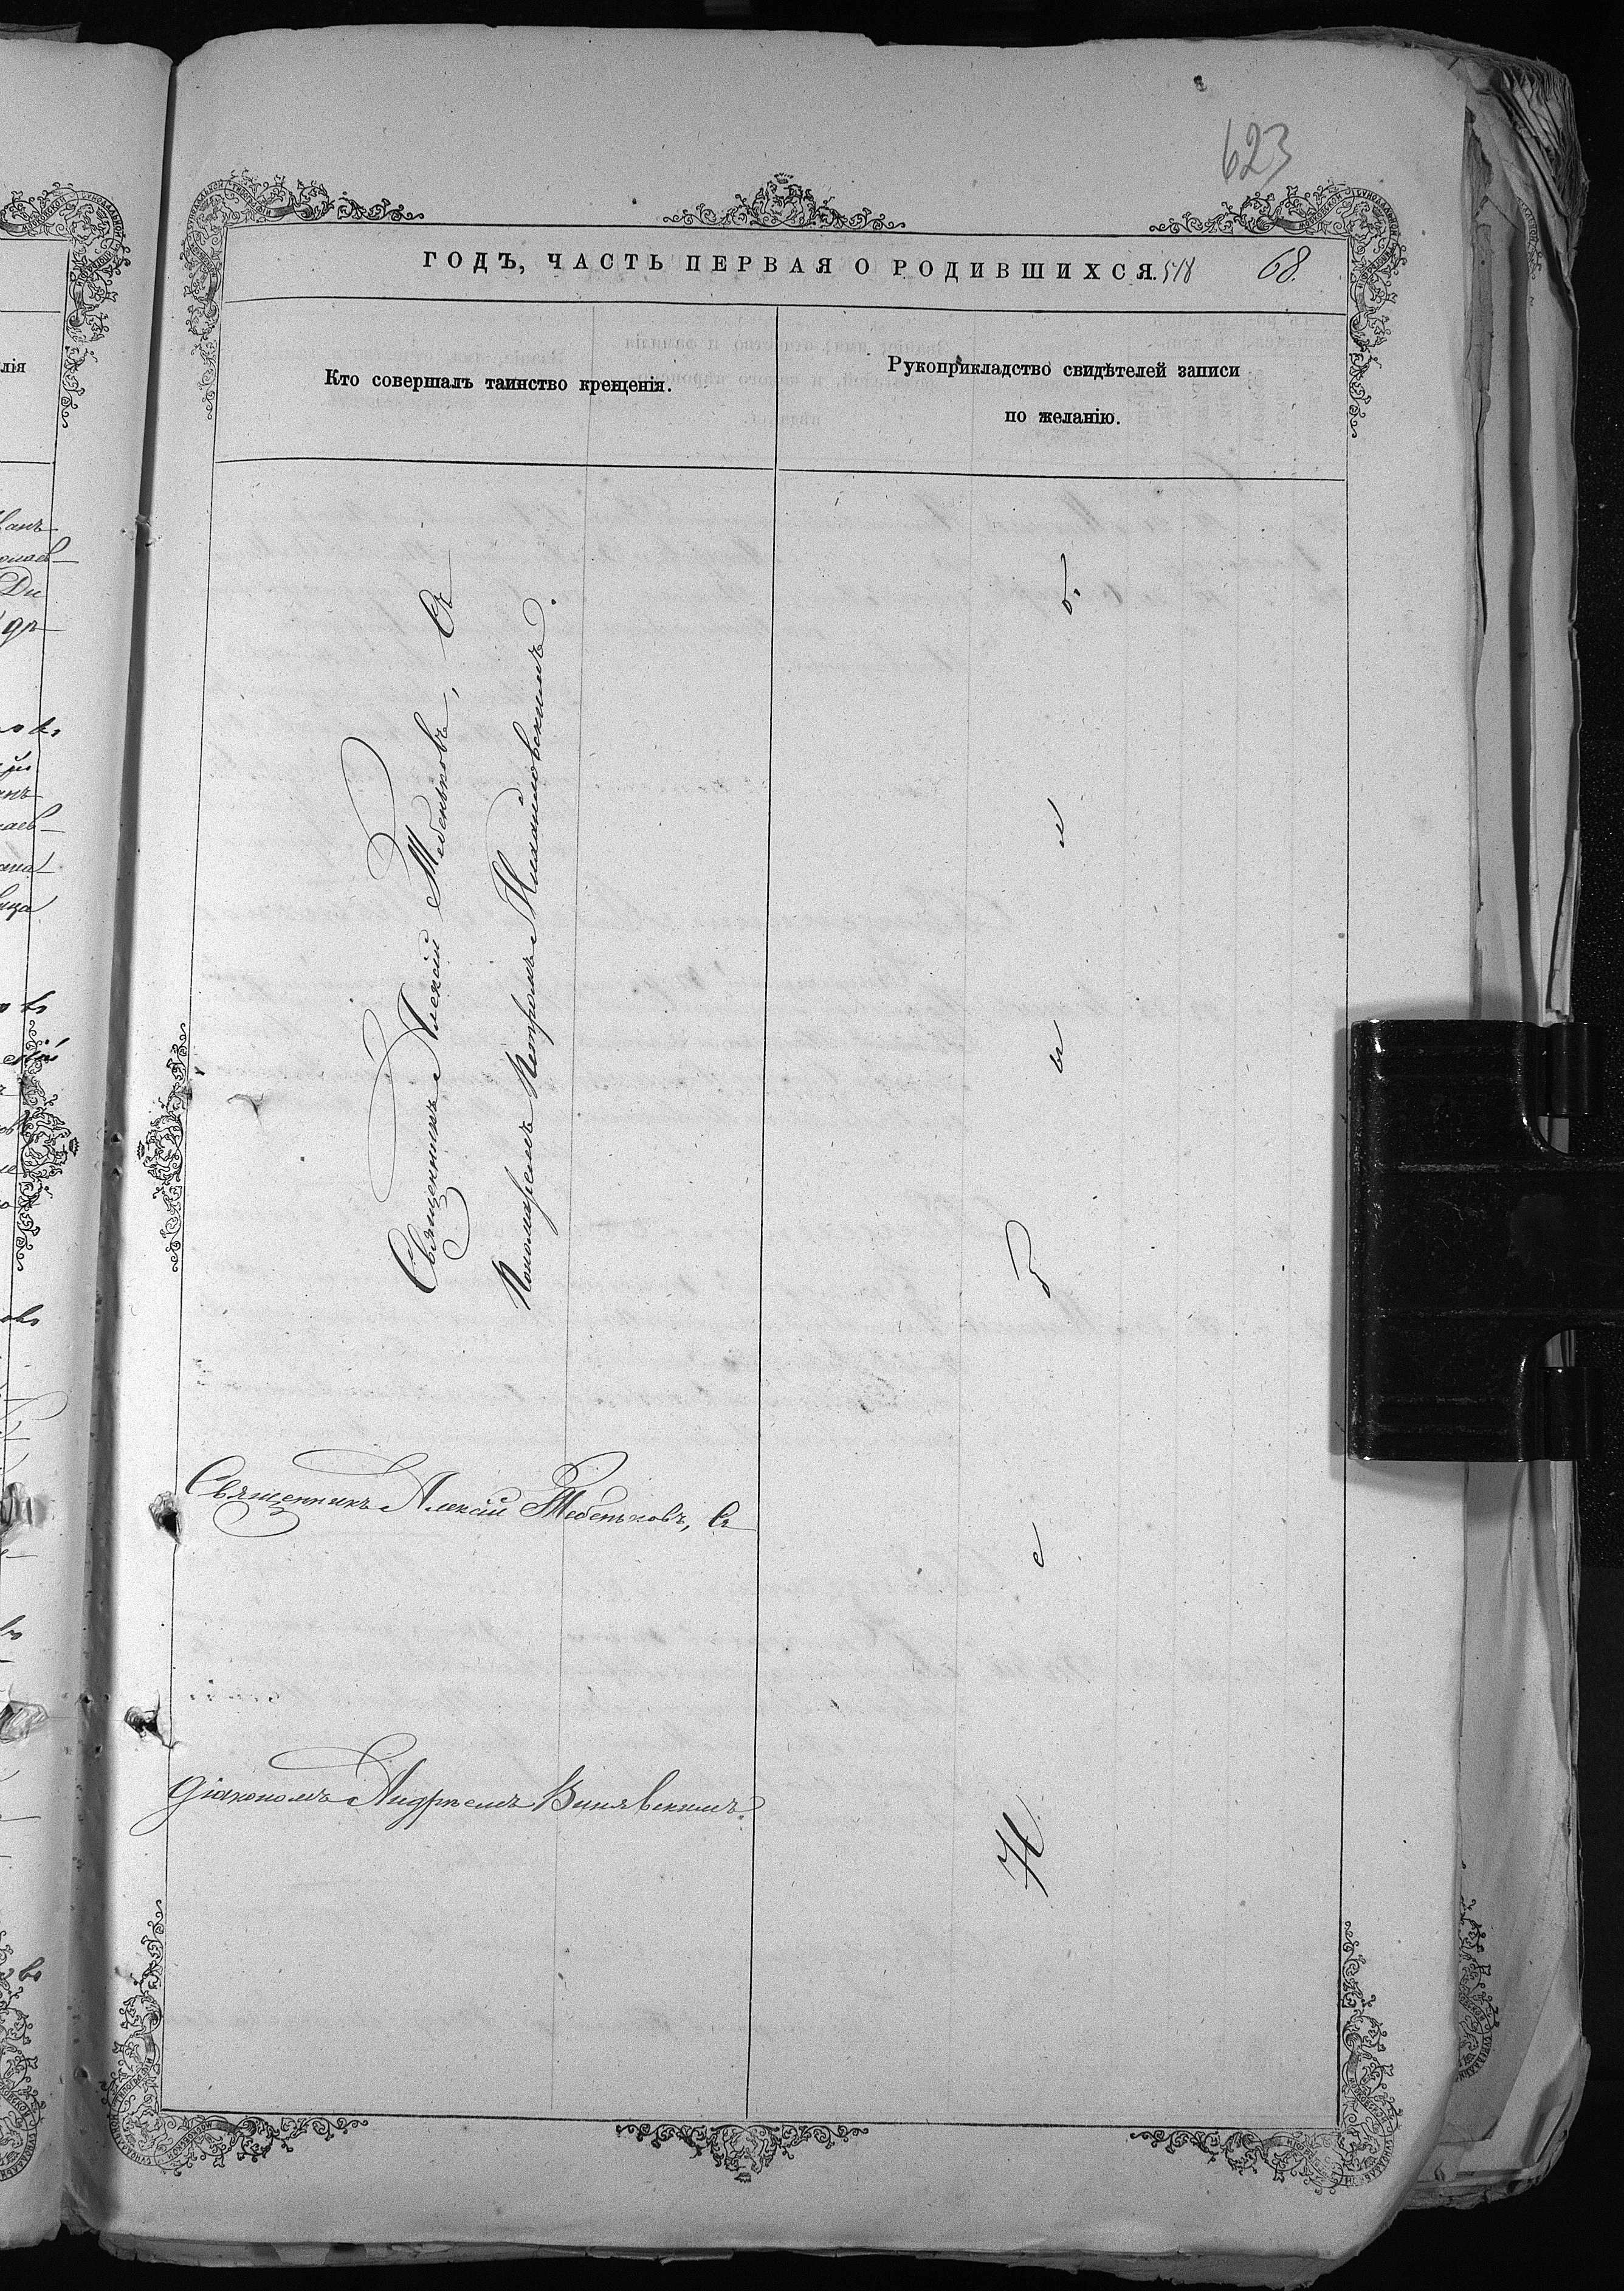 623
ГОДЪ, ЧАСТЬ ПЕРВАЯ О РОДИВШИХСЯ. 518 68.
лія
Кто совершалъ таинство крещенія.
Рукоприкладство свидѣтелей записи
по желанію.
Священникъ Алексій Тебеньковъ, Съ
Пономаремъ Петромъ Михайловскимъ.
Священникъ Алексій Тебеньковъ, Съ
Діакономъ Андреемъ Винявскимъ.
Не было.